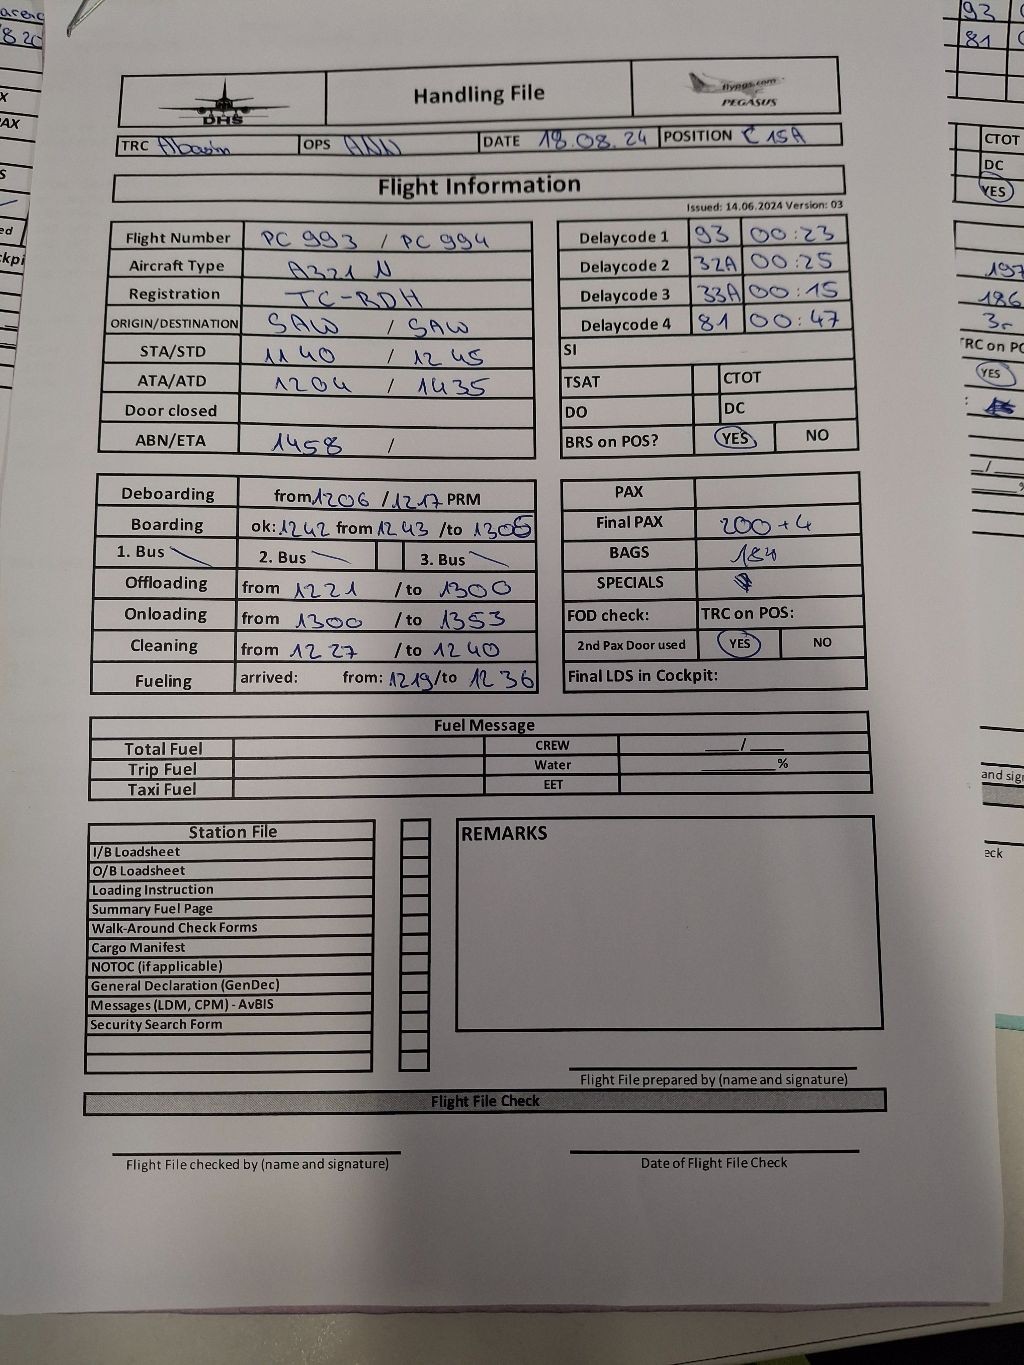 DHS
Handling File
flypgs.com
PEGASUS
TRC Abasin OPS ANN DATE 18.08.24 POSITION C 15A
Flight Information
Issued: 14.06.2024 Version: 03
Flight Number PC 993 / PC 994
Aircraft Type A321 N
Registration TC-RDH
ORIGIN/DESTINATION SAW / SAW
STA/STD 1140 / 1245
ATA/ATD 1204 / 1435
Door closed
ABN/ETA 1458 /
Delaycode 1 93 00:23
Delaycode 2 32A 00:25
Delaycode 3 33A 00:15
Delaycode 4 81 00:47
SI
TSAT CTOT
DO DC
BRS on POS? YES NO
Deboarding from 1206 / 1217 PRM
Boarding ok: 1242 from 1243 /to 1305
1. Bus 2. Bus 3. Bus
Offloading from 1221 /to 1300
Onloading from 1300 /to 1353
Cleaning from 1227 /to 1240
Fueling arrived: from: 1219/to 1236
PAX
Final PAX 200+4
BAGS 184
SPECIALS
FOD check: TRC on POS:
2nd Pax Door used YES NO
Final LDS in Cockpit:
Fuel Message
Total Fuel CREW ___/___
Trip Fuel Water ______%
Taxi Fuel EET
Station File
I/B Loadsheet
O/B Loadsheet
Loading Instruction
Summary Fuel Page
Walk-Around Check Forms
Cargo Manifest
NOTOC (if applicable)
General Declaration (GenDec)
Messages (LDM, CPM) - AvBIS
Security Search Form
REMARKS
Flight File prepared by (name and signature)
Flight File Check
Flight File checked by (name and signature)
Date of Flight File Check
93
81
CTOT
DC
YES
197
186
TRC on PO
YES
and sign